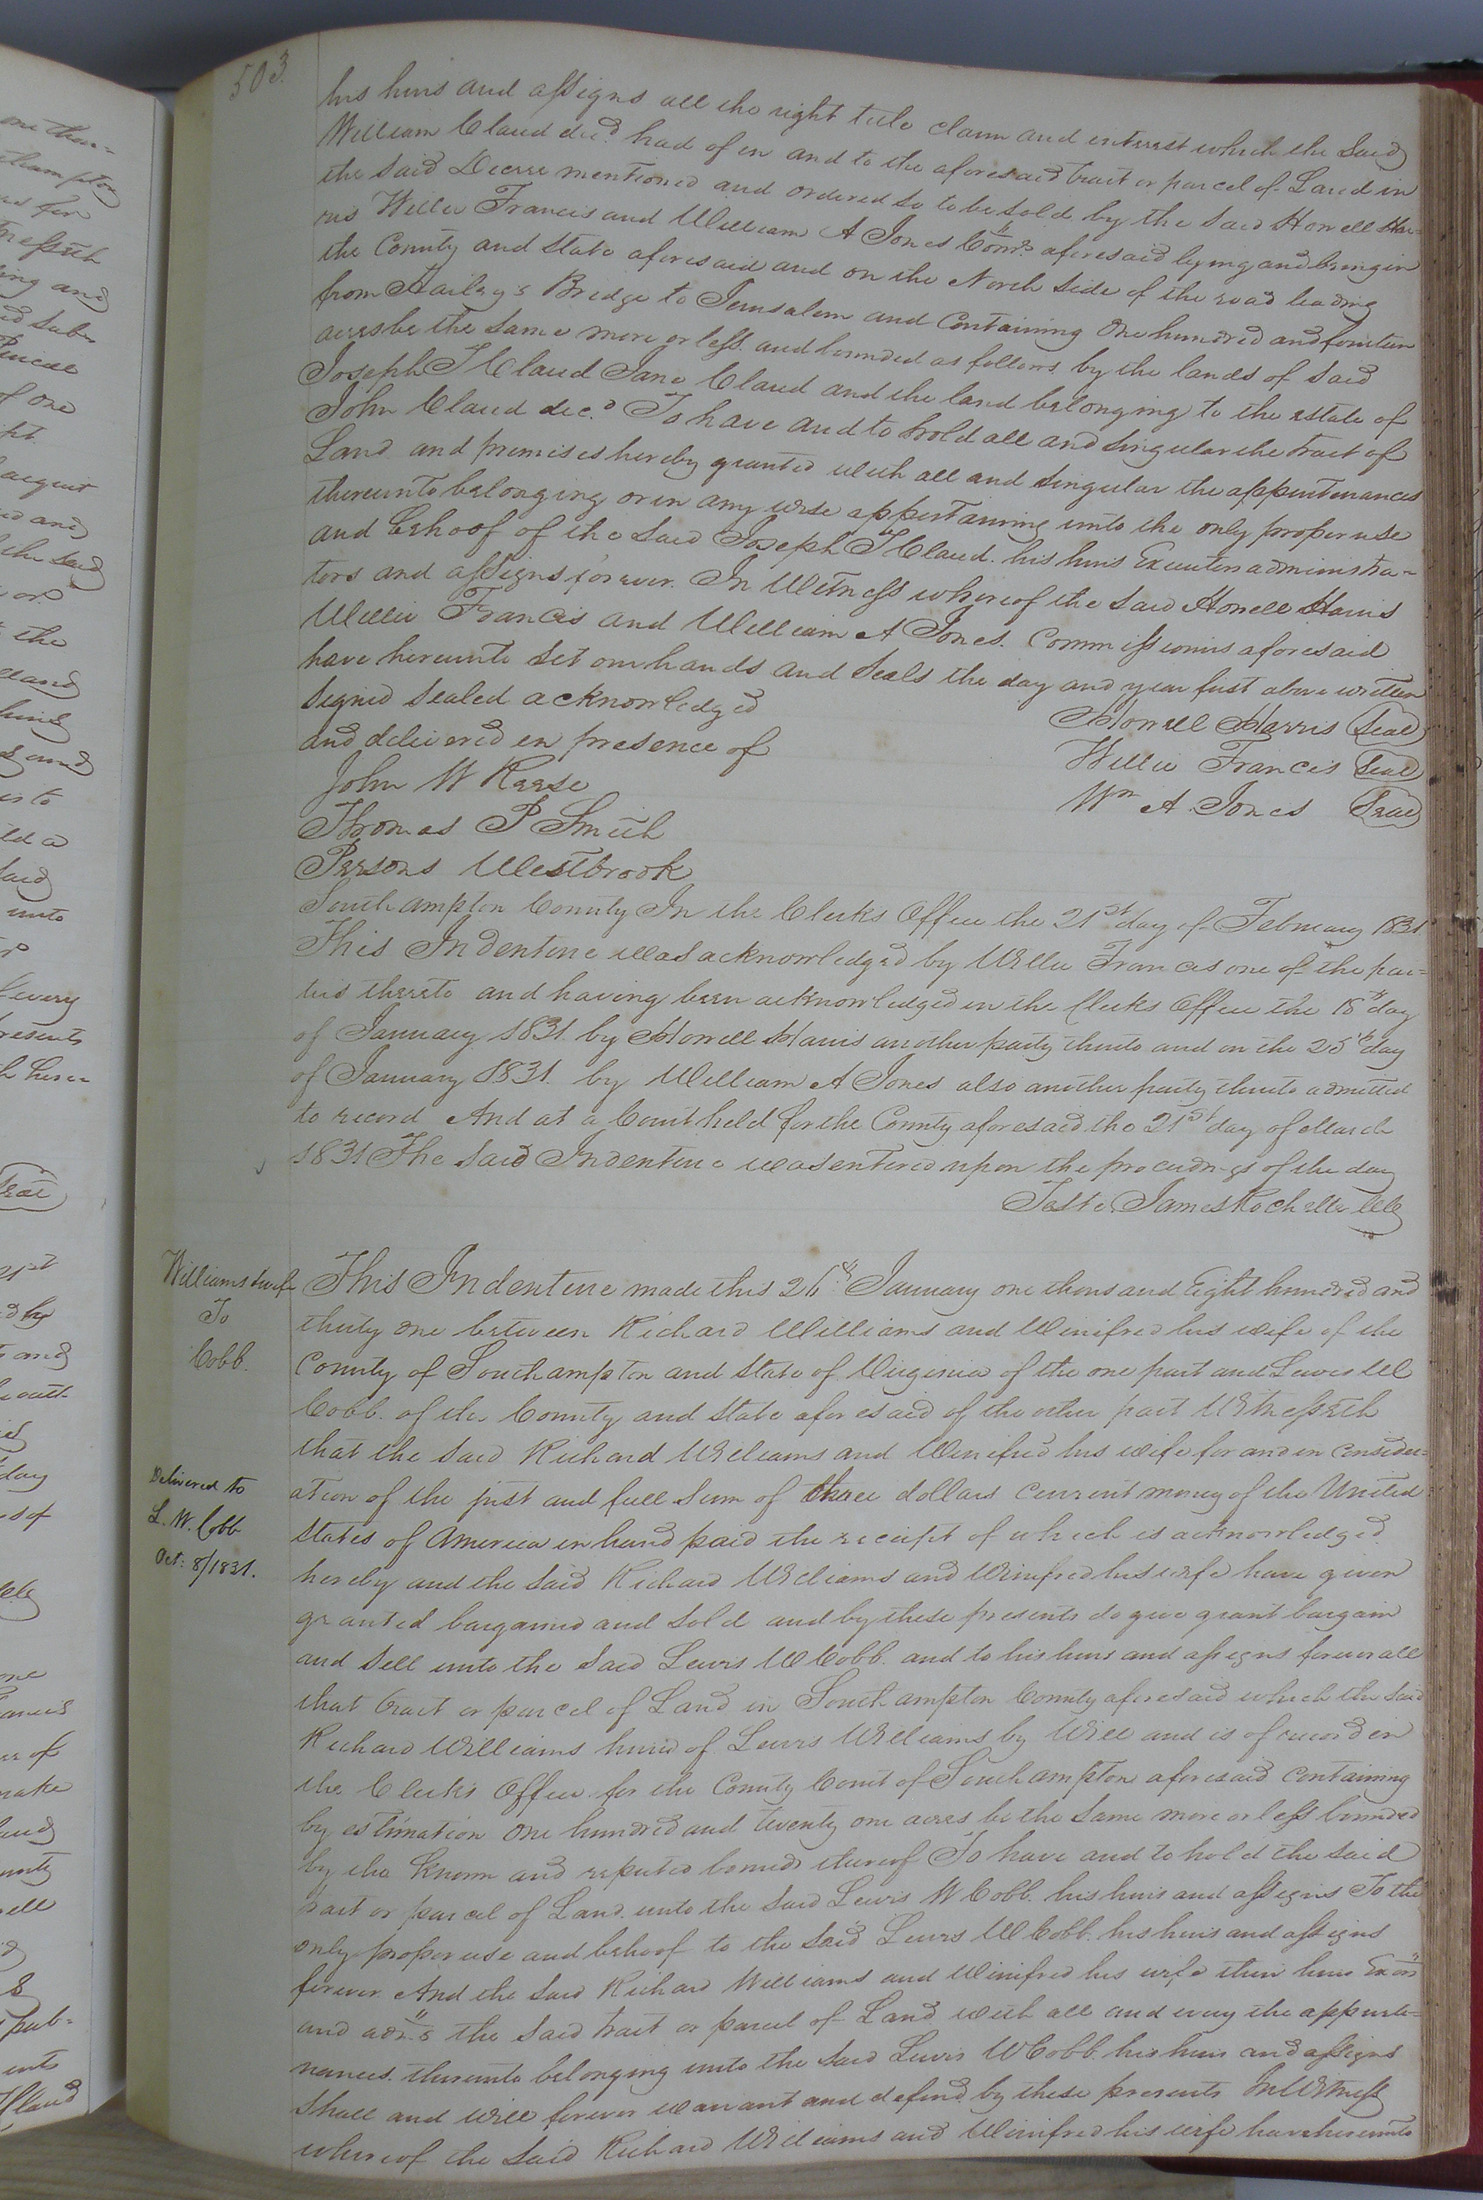 503.
his heirs and assigns all the right title claim and interest which the Said
William Claud decd. had of in and to the aforesaid tract or parcel of Land in
the said Decree mentioned and ordered so to be sold by the said Howell Har=
ris Willie Francis and William A Jones Comrs. aforesaid lying and being in
the County and State aforesaid and on the North side of the road leading
from Hailey's Bridge to Jerusalem and Containing One hundred and fourteen
acres be the same more or less and bounded as follows by the lands of said
Joseph T Claud Jane Claud and the land belonging to the estate of
John Claud decd. To have and to hold all and Singular the tract of
Land and premises hereby granted with all and Singular the appurtenances
thereunto belonging or in any wise appertaining unto the only proper use
and behoof of the said Joseph T Claud. his heirs Executors administra-
tors and assigns forever. In Witness whereof the said Howell Harris
Willie Francis and William A Jones. Commissioners aforesaid
have hereunto Set our hands and Seals the day and year first above written
Signed Sealed acknowledged
and delivered in presence of
John W Reese
Thomas P Smith
Persons Westbrook
Howell Harris Seal
Willie Francis Seal
Wm A. Jones Seal
Southampton County In the Clerks Office the 21st day of February 1831
This Indenture was acknowledged by Willie Francis one of the par=
ties thereto and having been acknowledged in the Clerks Office the 18th day
of January 1831. by Howell Harris another party thereto and on the 25th day
of January 1831. by William A Jones also another party thereto admitted
to record And at a Court held for the County aforesaid the 21st day of March
1831 The Said Indenture was entered upon the proceedings of the day
Teste James Rochelle Clk
Williams & wife
To
Cobb.
Delivered to
L. W. Cobb
Oct: 8/1831.
This Indenture made this 26th January one thousand Eight hundred and
thirty one between Richard Williams and Winifred his wife of the
County of Southampton and State of Virginia of the one part and Lewis W
Cobb. of the County and State aforesaid of the other part Witnesseth
that the said Richard Williams and Winifred his wife for and in consider=
ation of the just and full Sum of three dollars Current money of the United
States of America in hand paid the receipt of which is acknowledged
hereby and the said Richard Williams and Winifred his wife have given
granted bargained and sold and by these presents do give grant bargain
and Sell unto the said Lewis W Cobb. and to his heirs and assigns forever all
that tract or parcel of Land in Southampton County aforesaid which the said
Richard Williams heired of Lewis Williams by Will and is of record in
the Clerks Office for the County Court of Southampton aforesaid Containing
by estimation One hundred and twenty one acres be the same more or less bounded
by the known and reputed bounds thereof To have and to hold the said
tract or parcel of Land unto the said Lewis W Cobb. his heirs and assigns To the
only proper use and behoof to the said Lewis W Cobb. his heirs and assigns
forever And the said Richard Williams and Winifred his wife their heirs Exors
and adrs the said tract or parcel of Land with all and every the appurte=
nances. thereunto belonging unto the said Lewis W Cobb. his heirs and assigns
shall and will forever warrant and defend by these presents In Witness
whereof the said Richard Williams and Winifred his wife have hereunto